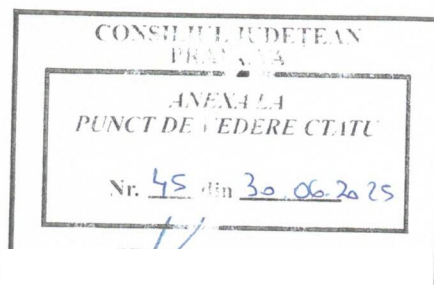 CONSILIUL JUDEȚEAN
PRAHOVA
ANEXA LA
PUNCT DE VEDERE CTATU
Nr. 45 din 30.06.2025